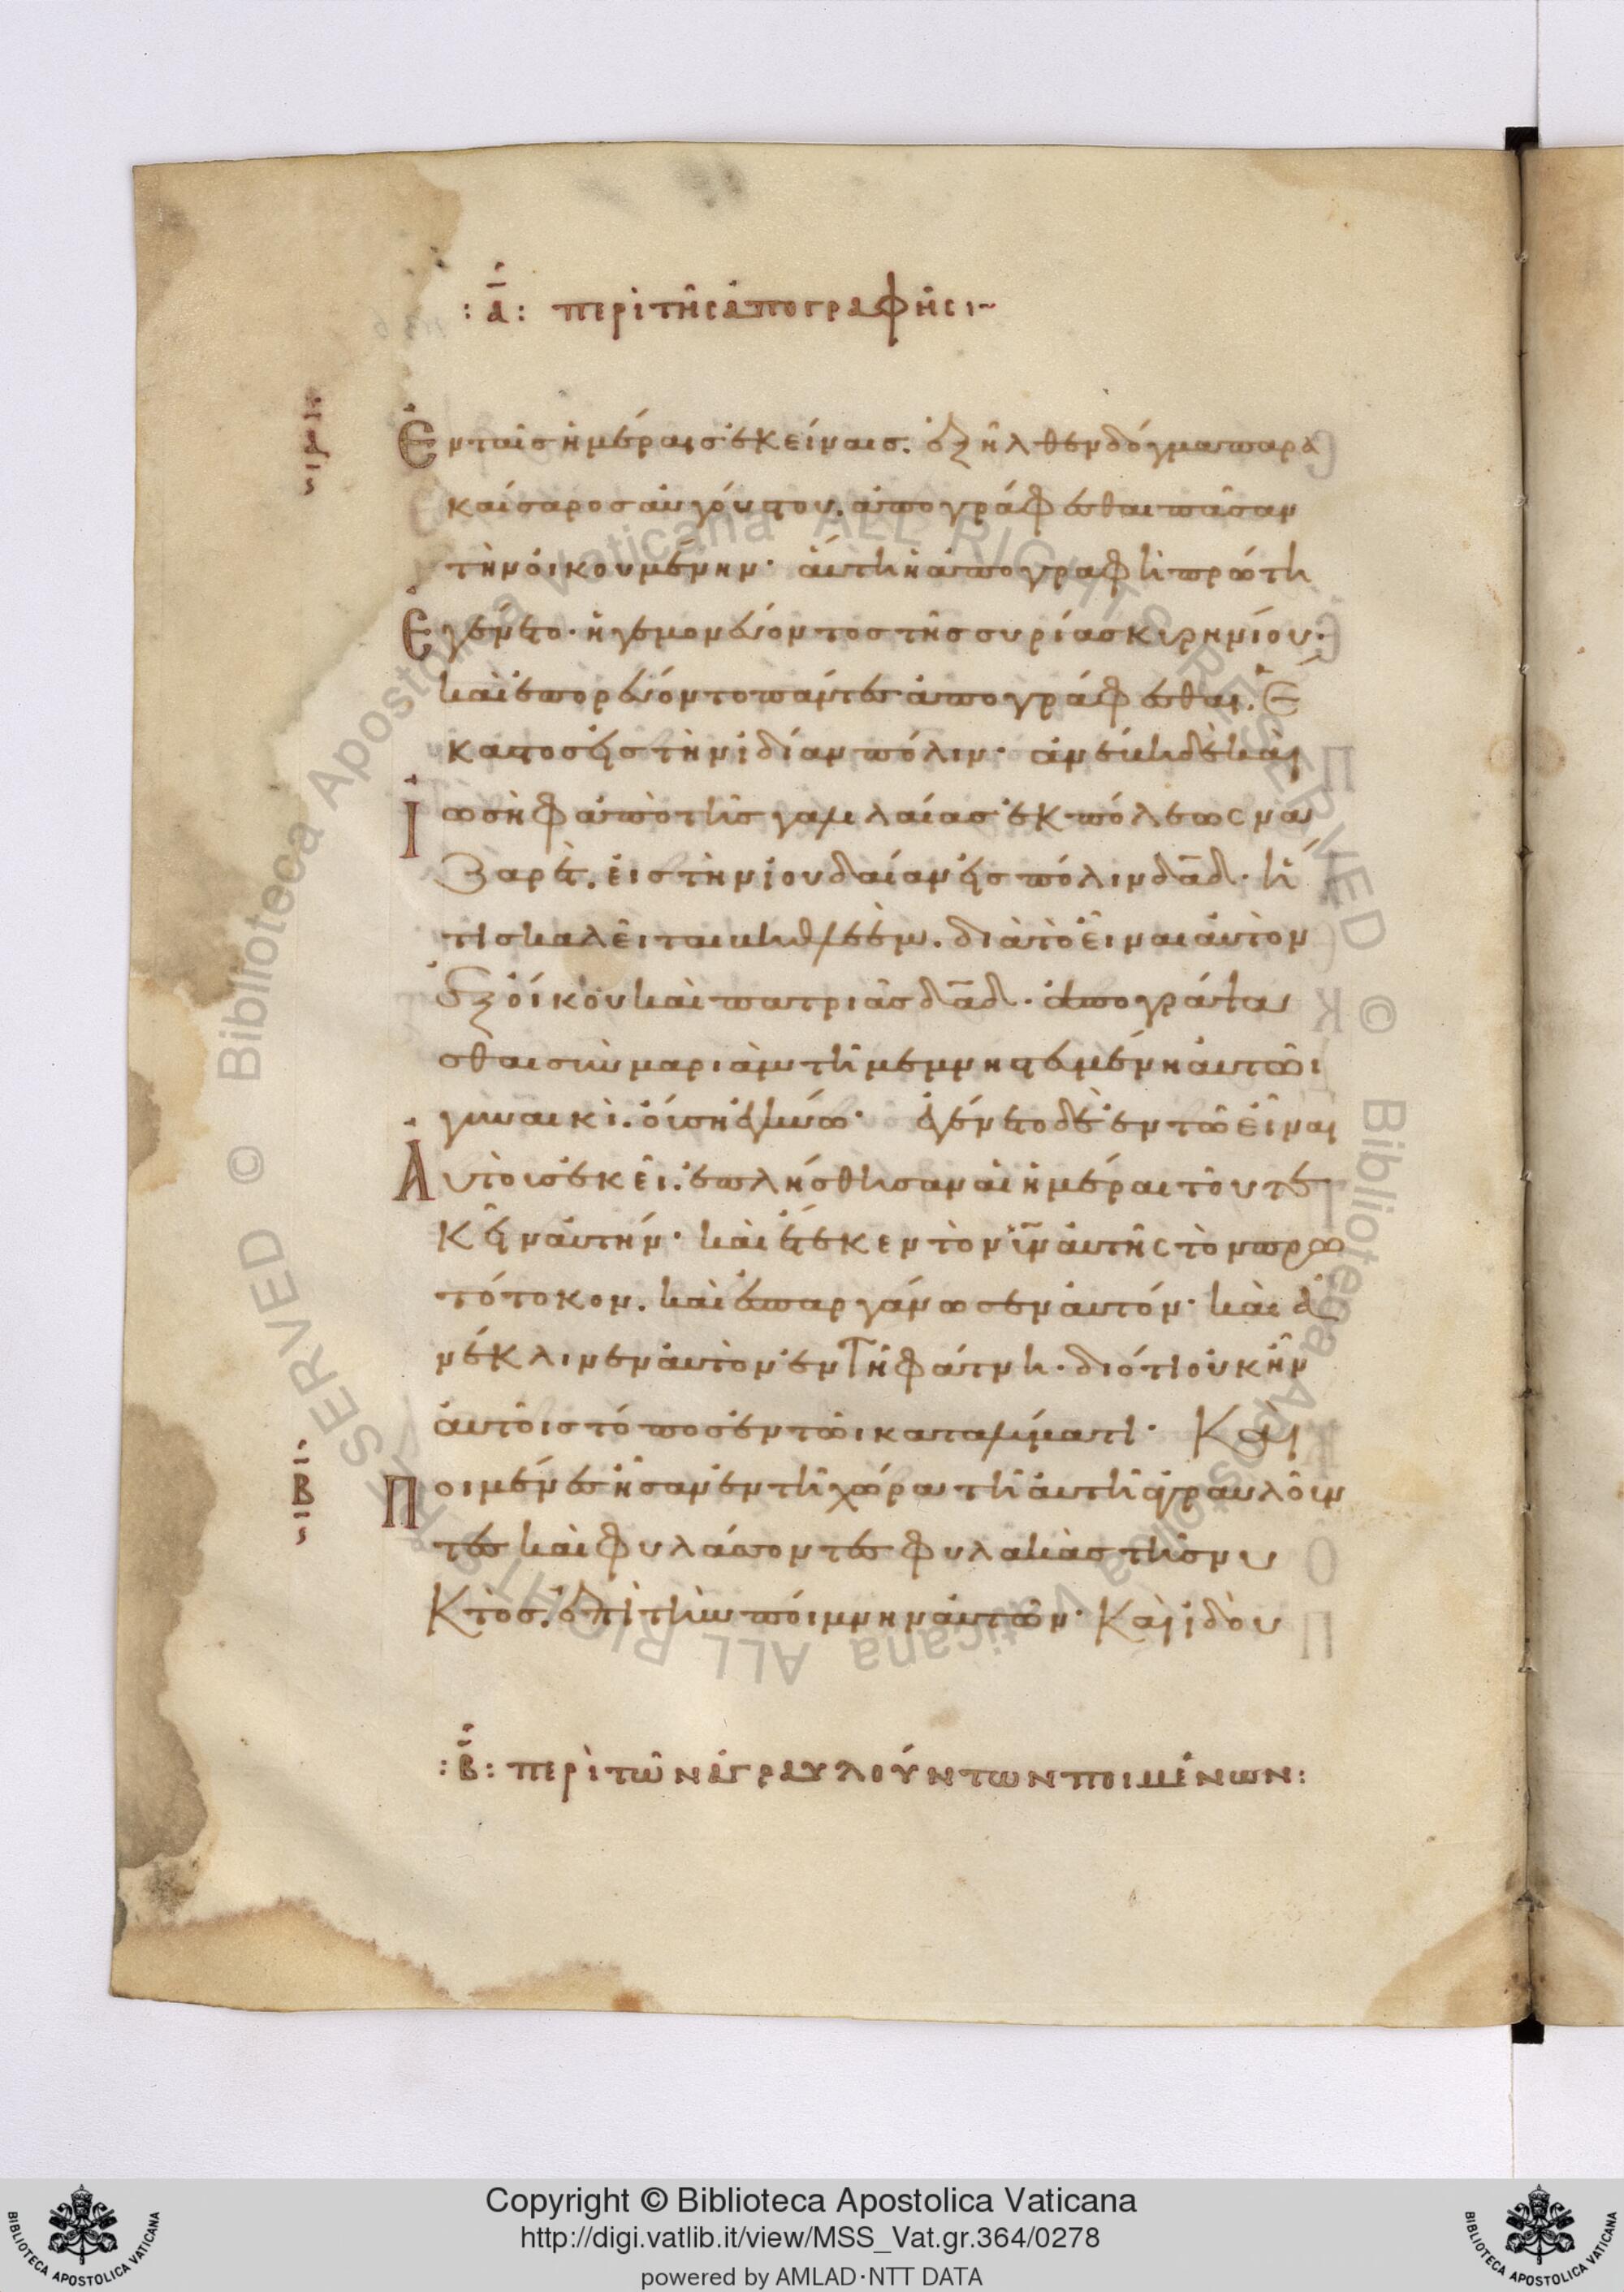 :Α: περὶ τῆς ἀπογραφῆς:~
Α
Ἐν ταῖς ἡμέραις ἐκείναις. ἐξῆλθεν δόγμα παρὰ
καίσαρος αὐγούστου. ἀπογράφεσθαι πᾶσαν
τὴν οἰκουμένην· αὕτη ἡ ἀπογραφὴ πρώτη
Ἐγένετο· ἡγεμονεύοντος τῆς συρίας κυρηνίου·
καὶ ἐπορεύοντο πάντες ἀπογράφεσθαι. ἕ
καστος εἰς τὴν ἰδίαν πόλιν· ἀνέβη δὲ καὶ
Ἰωσὴφ ἀπὸ τῆς γαλιλαίας ἐκ πόλεως να
ζαρέτ. εἰς τὴν ἰουδαίαν εἰς πόλιν δᾱδ· ἥ
τις καλεῖται βηθλεέμ. διὰ τὸ εἶναι αὐτὸν
ἐξ οἴκου καὶ πατριᾶς δᾱδ· ἀπογράψα
σθαι σὺν μαριὰμ τῆ μεμνηστευμένη αὐτῶι
γυναικὶ. οὔση ἐγκύω· ἐγένετο δὲ ἐν τῶ εἶναι
Αὐτοὺς ἐκεῖ. ἐπλήσθησαν αἱ ἡμέραι τοῦ τε
κεῖν αὐτήν· καὶ ἔτεκεν τὸν ῡν αὐτῆς τὸν πρω
τότοκον. καὶ ἐσπαργάνωσεν αὐτόν· καὶ ἀ
νέκλινεν αὐτὸν ἐν τῆ φάτνη· διότι οὐκ ἦν
αὐτοῖς τόπος ἐν τῶι καταλύματι· Καὶ
Β
Ποιμένες ἦσαν ἐν τῆ χώρα τῆ αὐτῆ ἀγραυλοῦν
τες καὶ φυλάσσοντες φυλακὰς τῆς νυ
κτος. ἐπὶ τὴν ποίμνην αὐτῶν· Καὶ ἰδοὺ
:Β: περὶ τῶν ἀγραυλούντων ποιμένων:
© Biblioteca Apostolica Vaticana ALL RIGHTS RESERVED © Biblioteca Apostolica Vaticana ALL RIGHTS RESERVED
Copyright © Biblioteca Apostolica Vaticana
http://digi.vatlib.it/view/MSS_Vat.gr.364/0278
powered by AMLAD·NTT DATA
BIBLIOTECA APOSTOLICA VATICANA
BIBLIOTECA APOSTOLICA VATICANA